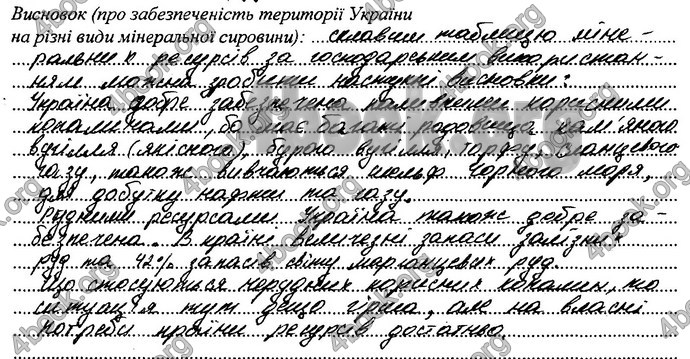 Висновок (про забезпеченість території України
на різні види мінеральної сировини): склавши таблицю міне-
ральних ресурсів за господарським використан-
ням можна зробити наступні висновки:
Україна добре забезпечена паливними корисними
копалинами, бо має багаті родовища кам'яного
вугілля (якісного), бурого вугілля, торфу, сланцевого
газу, також вивчаються шельф Чорного моря,
для добутку нафти та газу.
Рудними ресурсами Україна також добре за-
безпечена. В країні величезні запаси залізних
руд та 42% запасів світу марганцевих руд.
Що стосуються нерудних корисних копалин, то
ситуація тут дещо гірша, але на власні
потреби країни ресурсів достатньо
4book.org